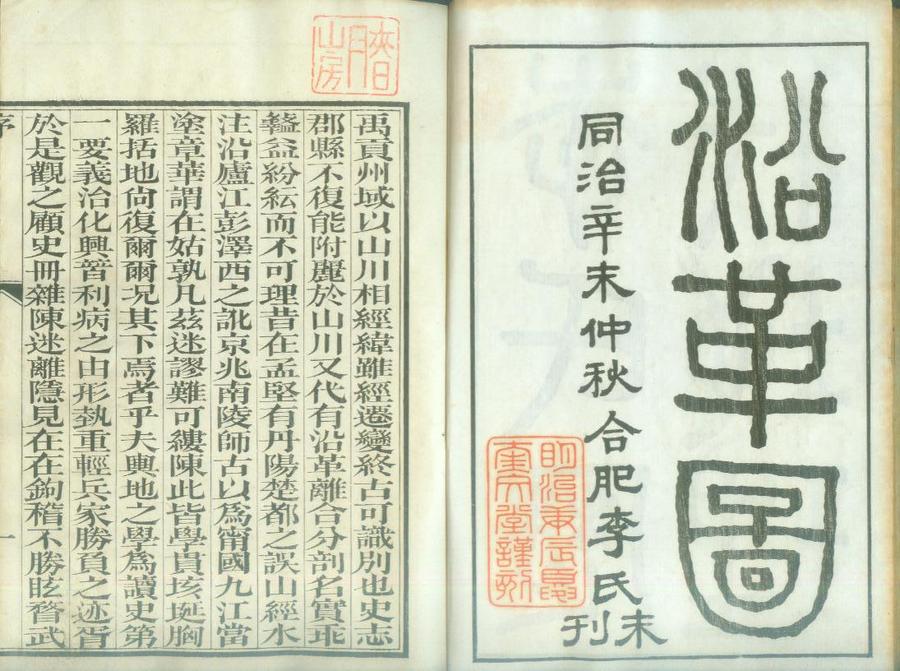 沿革圖
同治辛未仲秋合肥李氏
刊
奎文堂謹刻
禹貢州域以山川相經緯雖經遷變終古可識別也史志
郡縣不復能附麗於山川又代有沿革離合分剖名實乖
盭益紛紜而不可理昔在孟堅有丹陽楚都之誤山經水
注沿廬江彭澤西之訛京兆南陵師古以爲甯國九江當
塗章華謂在姑孰凡茲迷謬難可縷陳此皆學貫垓埏胸
羅括地尙復爾爾況其下焉者乎夫輿地之學爲讀史第
一要義治化興替利病之由形埶重輕兵家勝負之迹胥
於是觀之顧史冊雜陳迷離隱見在在鉤稽不勝眩瞀武
序 一